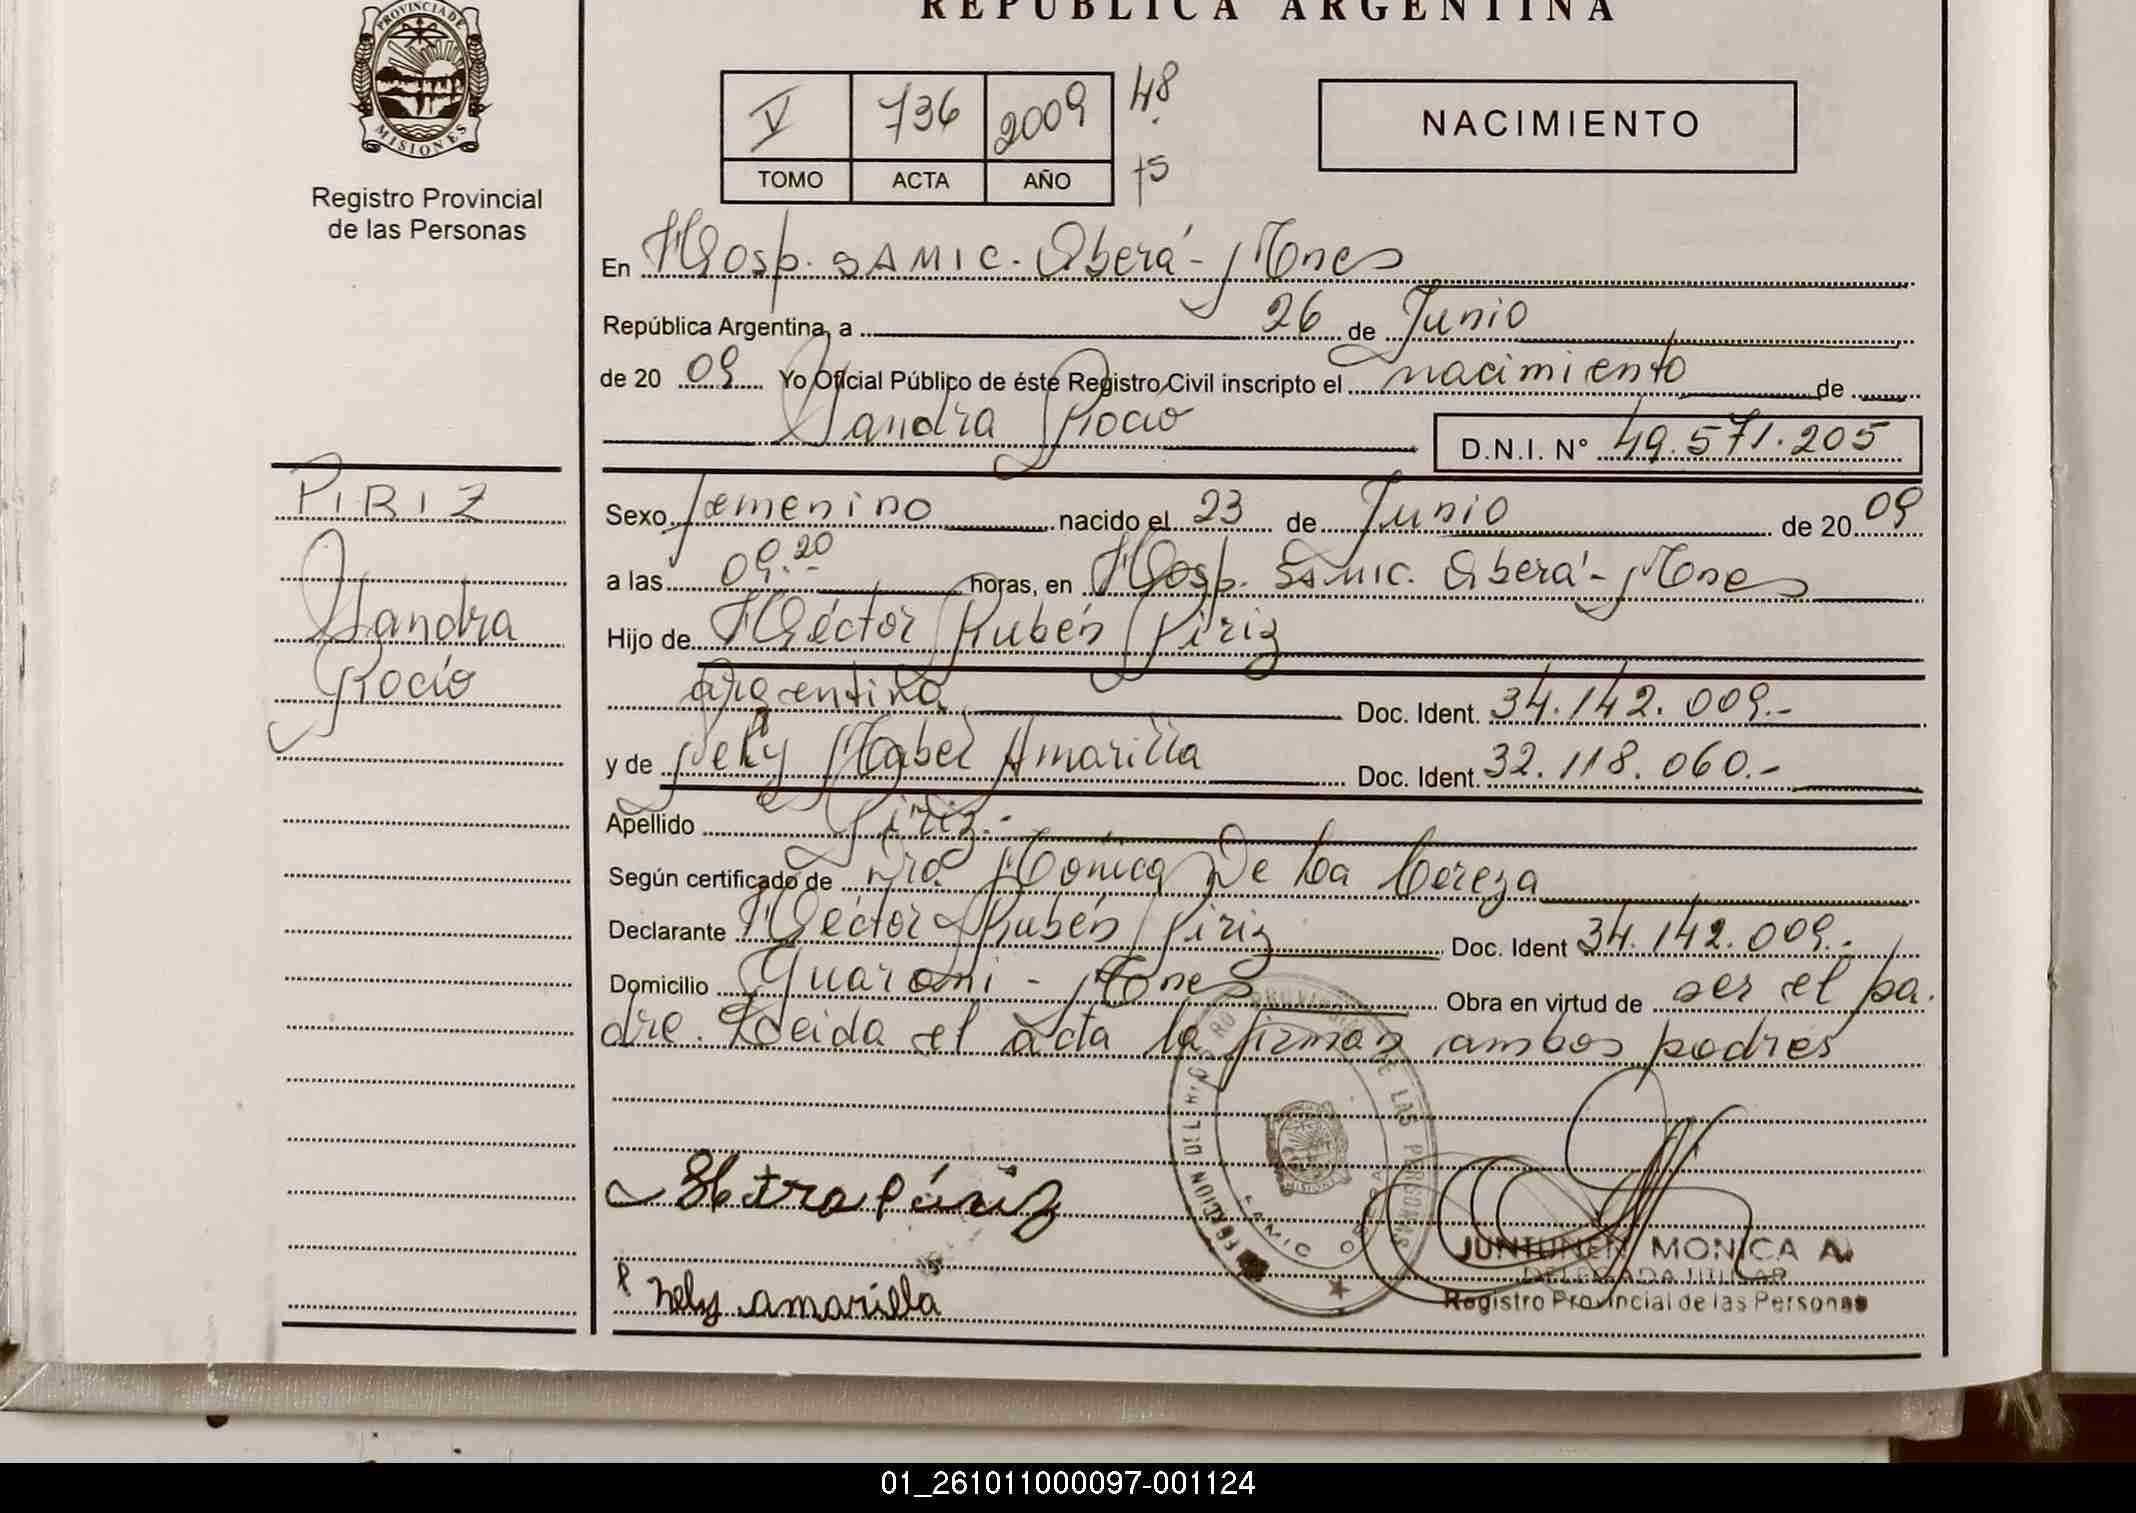 REPUBLICA ARGENTINA
PROVINCIA DE
MISIONES
Registro Provincial
de las Personas
V 736 2009 48
TOMO ACTA AÑO 75
NACIMIENTO
En Hosp. SAMIC. Oberá - Mnes
República Argentina, a 26 de Junio
de 20 09 Yo Oficial Público de éste Registro Civil inscripto el nacimiento de
Sandra Rocío
D.N.I. N° 49.571.205
PIRIZ
Sandra
Rocío
Sexo femenino nacido el 23 de Junio de 20 09
a las 09.20 horas, en Hosp. SAMIC. Oberá - Mnes
Hijo de Héctor Rubén Piriz
argentina Doc. Ident. 34.142.009.-
y de Nely Mabel Amarilla Doc. Ident. 32.118.060.-
Apellido Piriz.-
Según certificado de Dra. Mónica De La
Declarante Héctor Rubén Piriz Doc. Ident 34.142.009.-
Domicilio Guaraní - Mnes Obra en virtud de ser el pa.
dre. Leida el acta la firman ambos padres
DE LAS PERSONAS
MISIONES
SAMIC OBERA
Piriz
nely amarilla
JUNTUNEN MONICA A.
DELEGADA TITULAR
Registro Provincial de las Personas
01_261011000097-001124